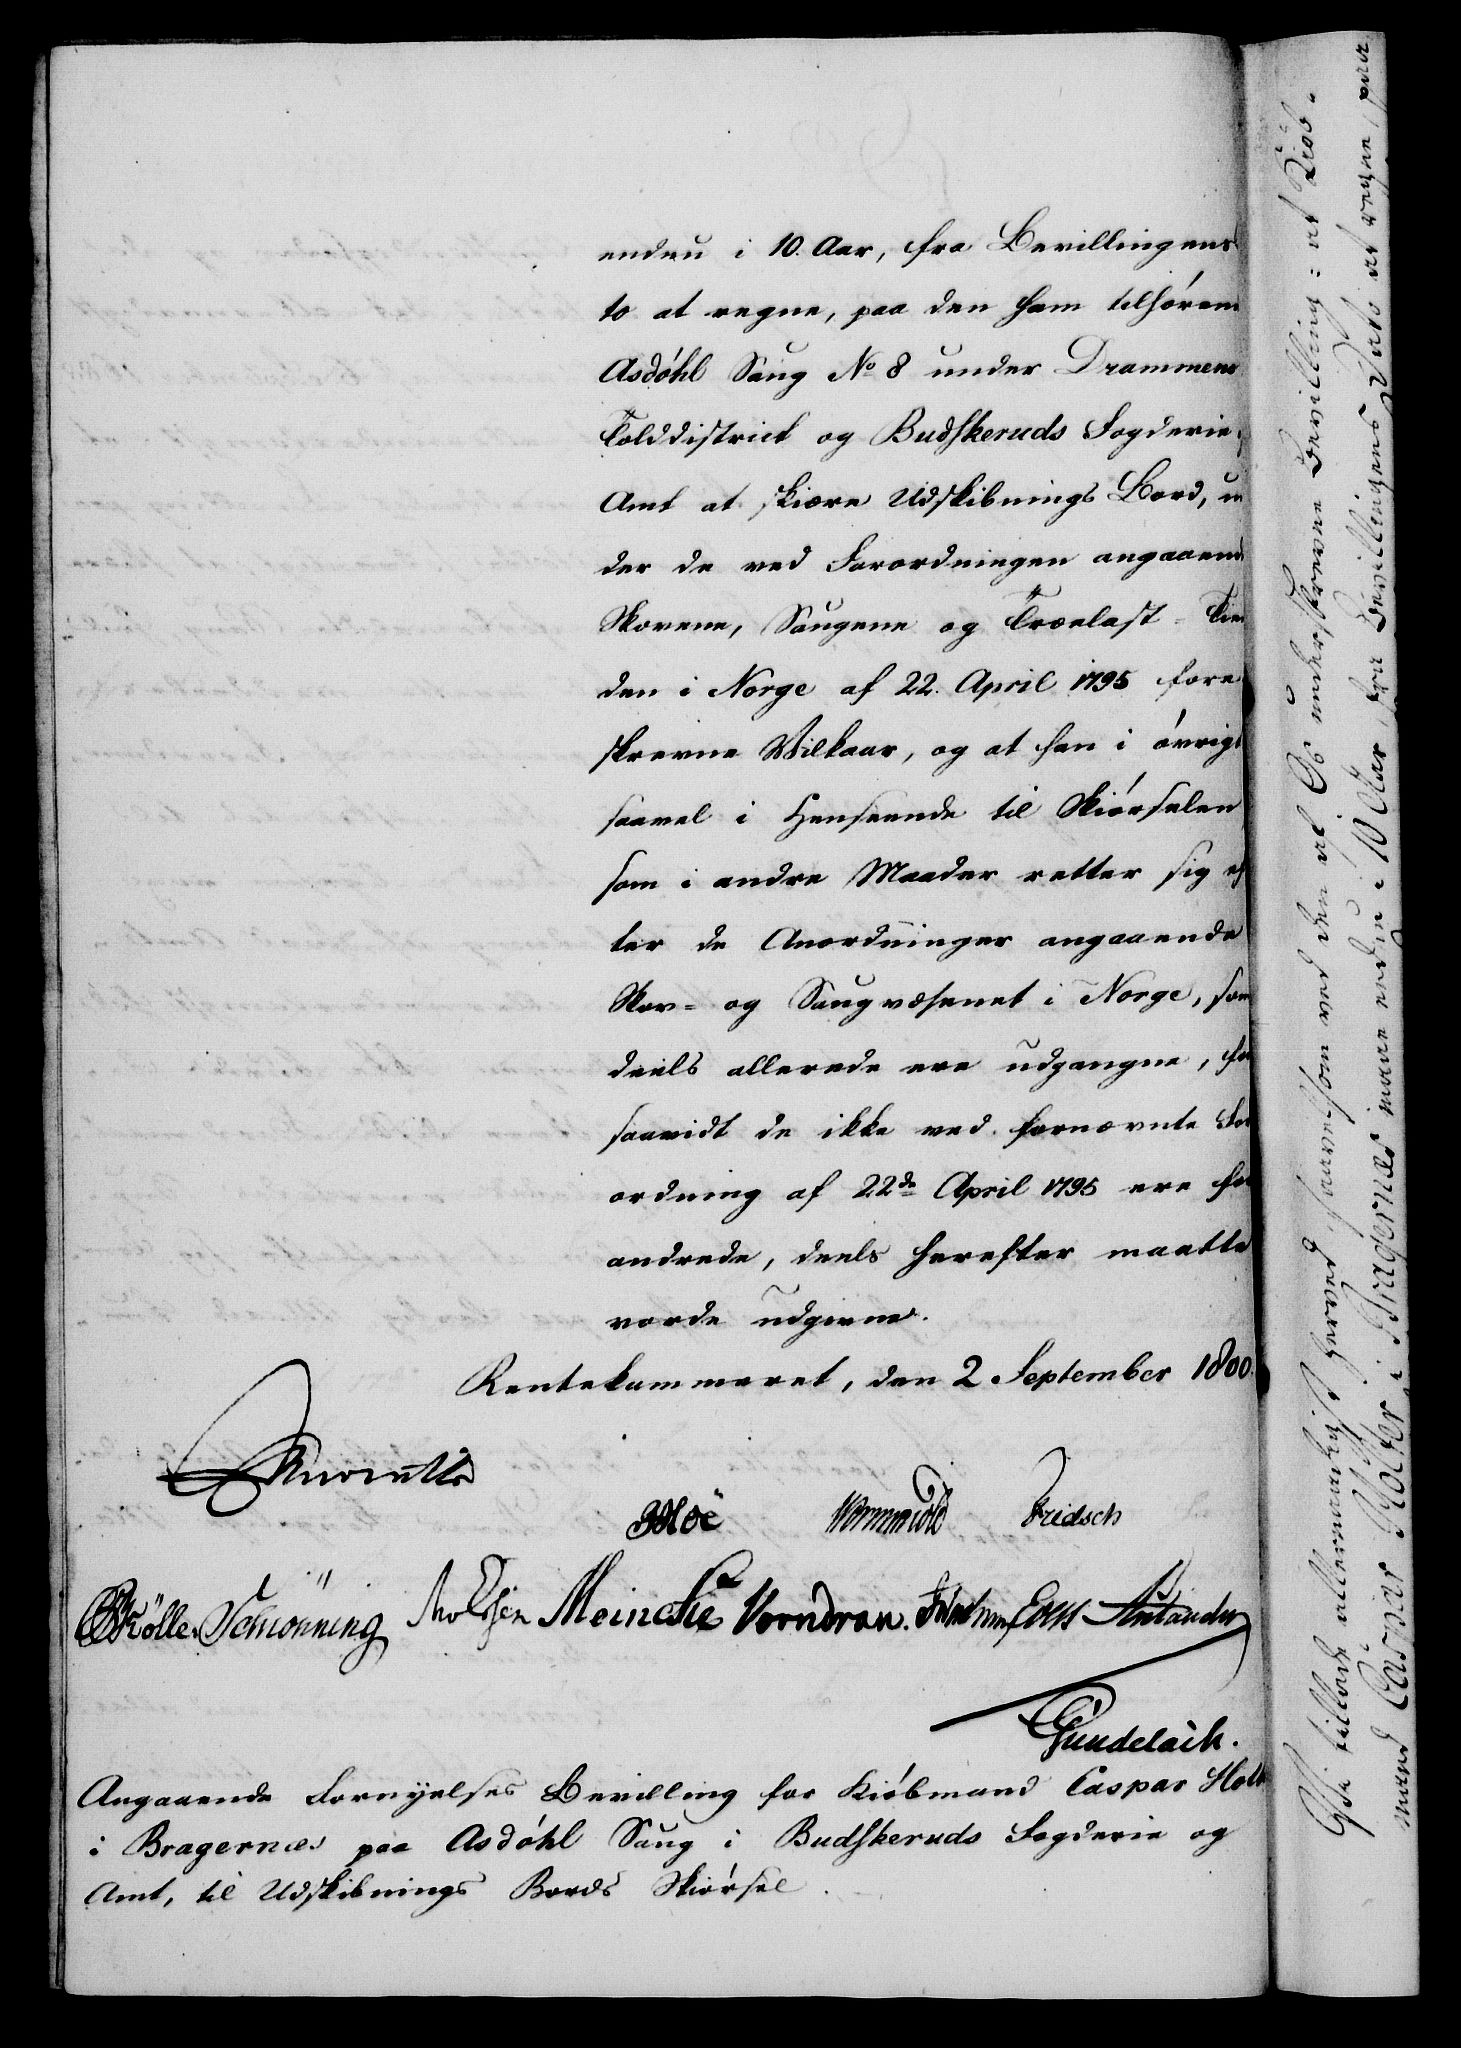 endnu i 10. Aar, fra Bevillingens
to at regne, paa den ham tilhøren
Asdøhl Saug No 8 under Drammens
Tolddistrict og Budskeruds Fogderie,
Amt at skiære Udskibnings Bord, un
der de ved Forordningen angaaend
Skovene, Saugene og Trælast-Tien
den i Norge af 22. April 1795 fore
skrevne Vilkaar, og at han i øvrigt
saavel i Henseende til Skiørselen
som i andre Maader retter sig ef
ter de Anordninger angaaende
Skov- og Saugvæsenet i Norge, som
deels allerede ere udgangne, for
saavidt de ikke ved fornævnte For
ordning af 22de April 1795 ere for
andrede, deels herefter maatte
vorde udgivne.
Rentekammeret, den 2 September 1800.
Wormskiold Fridsch
Schiönning Meincke Vorndran.
Gundelach.
Angaaende Fornyelses Bevilling for Kiøbmand Caspar Holt
i Bragernæs paa Asdøhl Saug i Budskeruds Fogderie og
Amt, til Udskibnings Bords Skiørsel.
Vi tillade allernaadigst herved, saavelsom ved den af Os underskrevne Bevilling: at Kiøb-
mand Caspar Holter i Bragernæs maae endnu i 10 Aar fra Bevillingens Dato at regne, paa